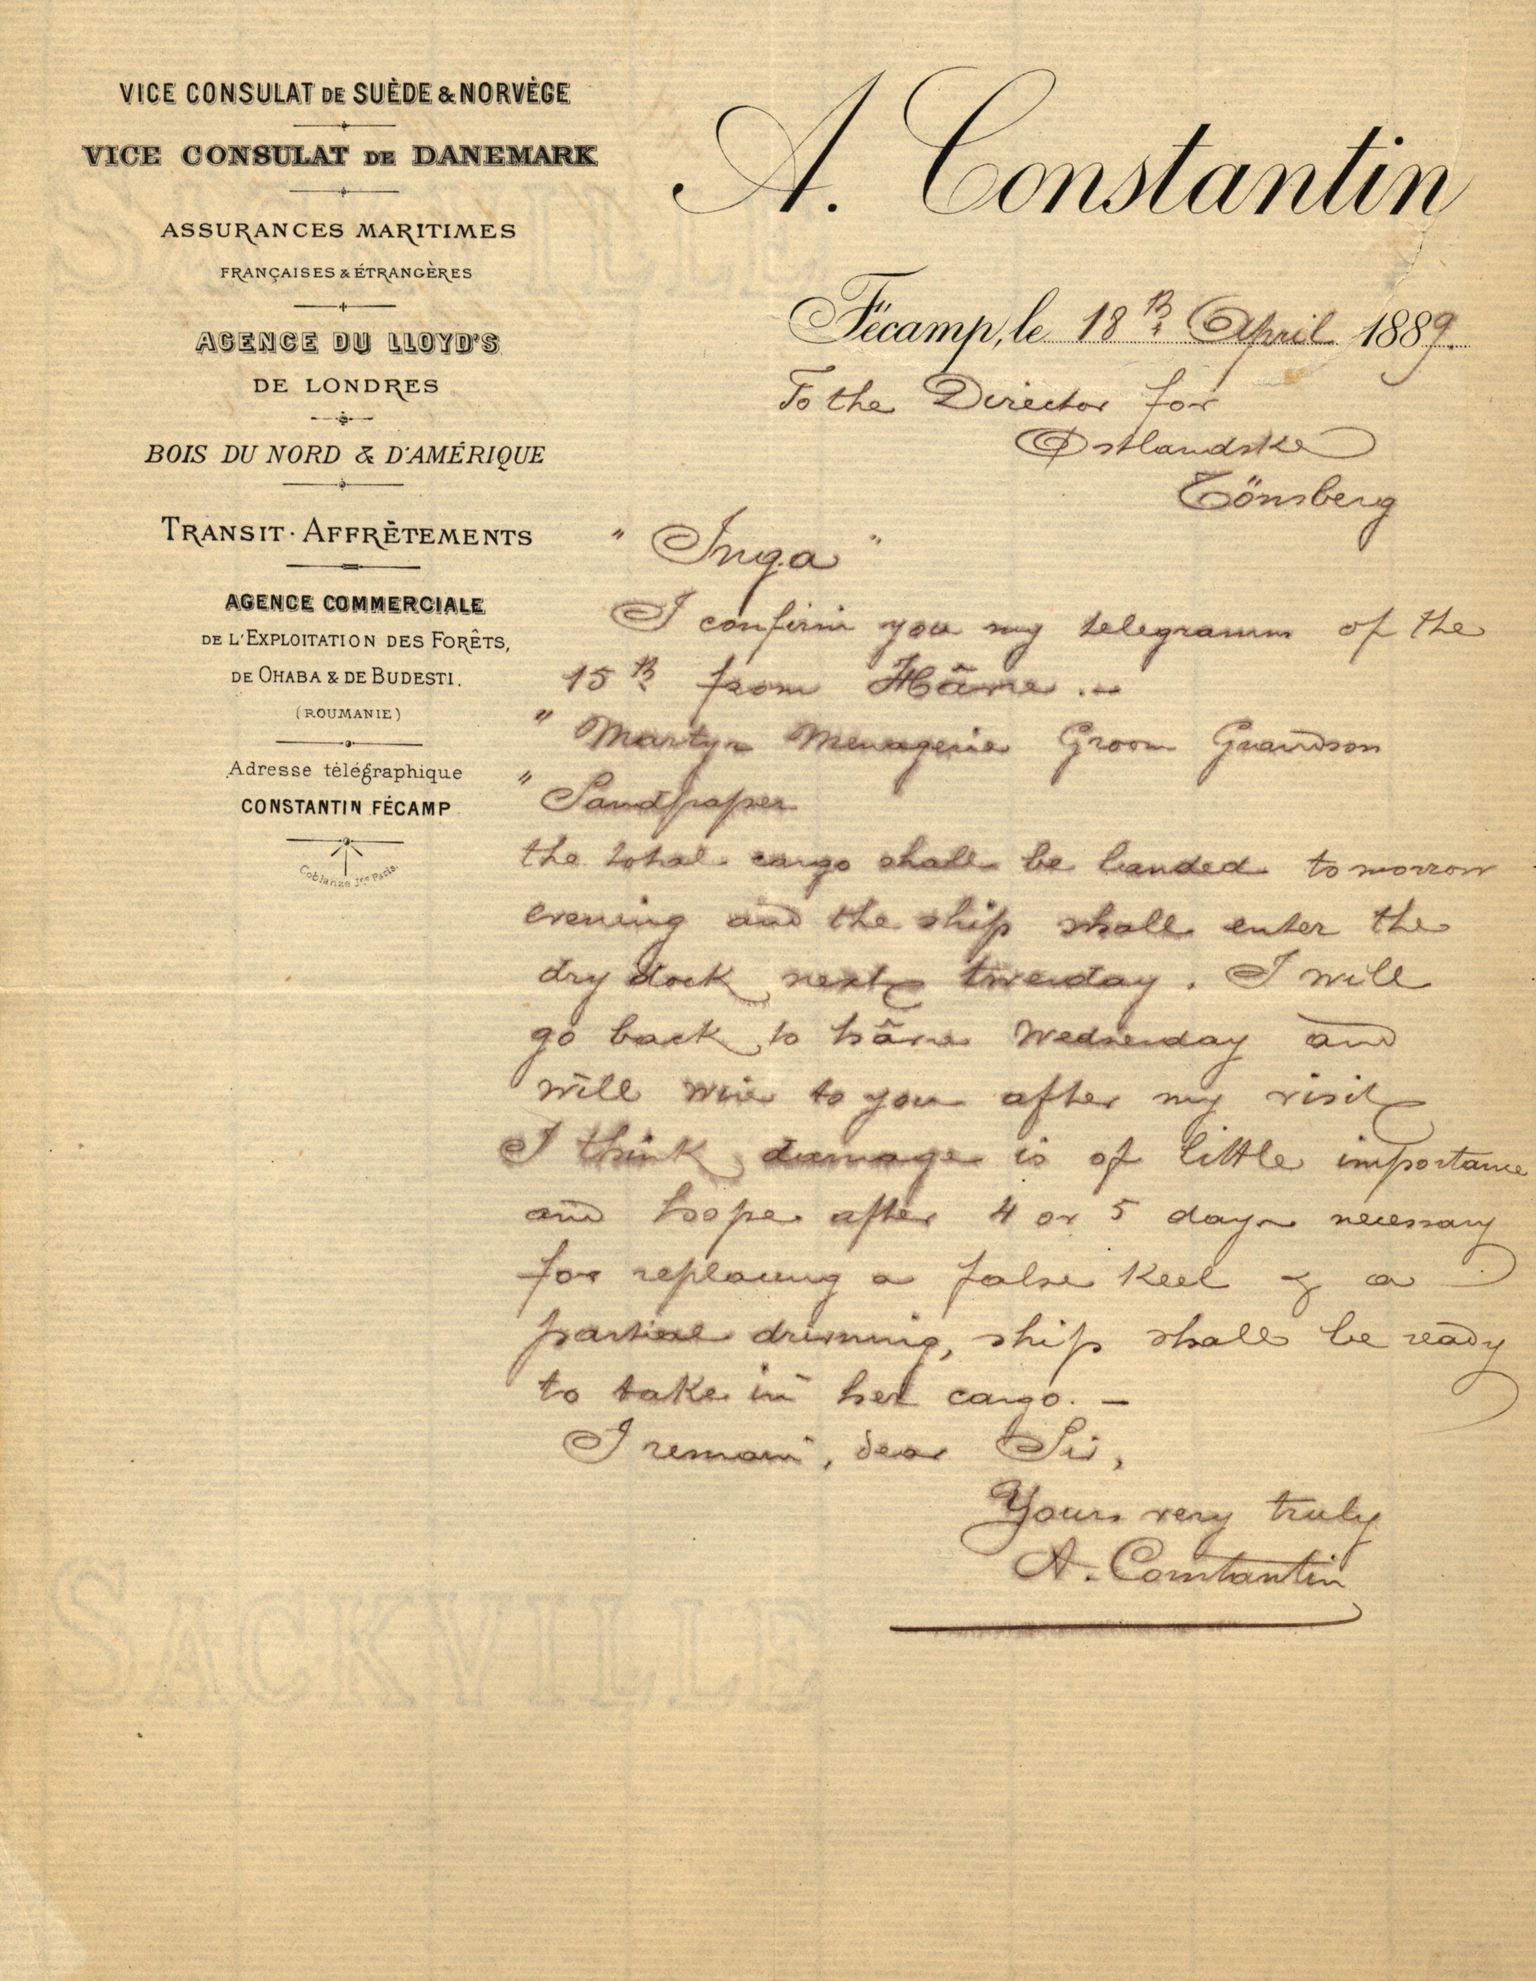 VICE CONSULAT DE SUÈDE & NORVÈGE
VICE CONSULAT DE DANEMARK
ASSURANCES MARITIMES
FRANÇAISES & ÉTRANGÈRES
AGENCE DU LLOYD'S
DE LONDRES
BOIS DU NORD & D'AMÉRIQUE
TRANSIT · AFFRÈTEMENTS
AGENCE COMMERCIALE
DE L'EXPLOITATION DES FORÊTS,
DE OHABA & DE BUDESTI.
(ROUMANIE)
Adresse télégraphique
CONSTANTIN FÉCAMP
Coblanze Jne Paris.
A. Constantin
Fécamp, le 18th April 1889.
To the Director for
Østlandske
Tönsberg
" Inga "
I confirm you my telegramm of the
15th from Hâvre. –
" Martyr Menagerie Groom Grandson
" Sandpaper
the total cargo shall be landed tomorrow
evening and the ship shall enter the
dry dock next tuesday. I will
go back to hâvre Wednesday and
will wire to you after my visit
I think damage is of little importance
and hope after 4 or 5 days necessary
for replacing a false keel & a
partial driving, ship shall be ready
to take in her cargo. –
I remain, dear Sir,
Yours very truly
A. Constantin
SACKVILLE